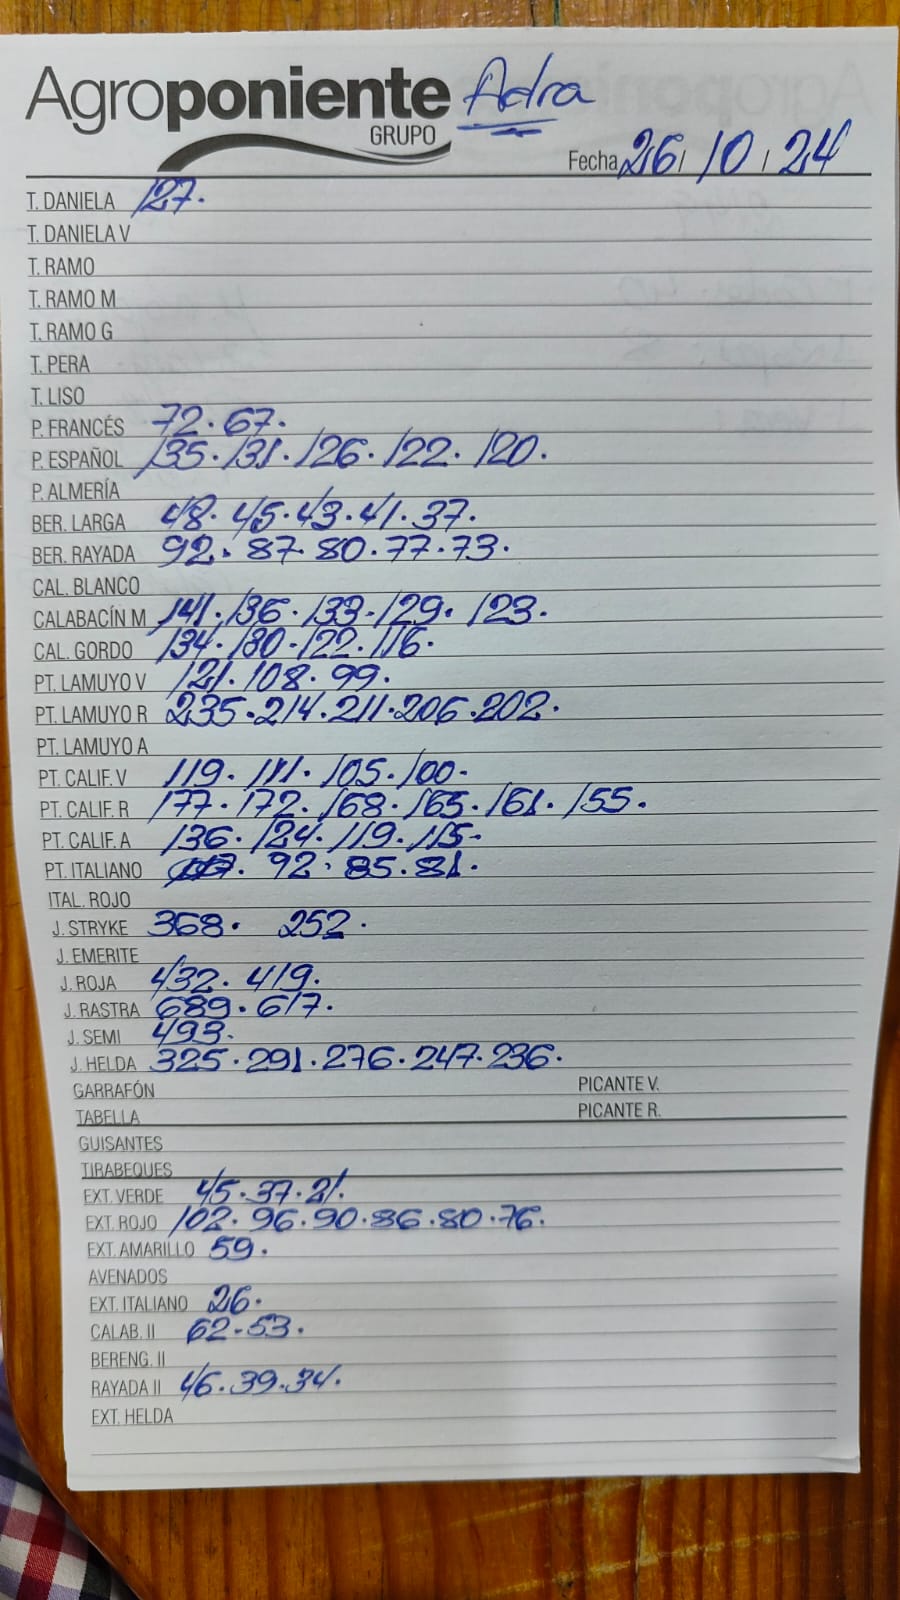 Agroponiente Adra
GRUPO
Fecha 26 / 10 / 24
T. DANIELA 127.
T. DANIELA V
T. RAMO
T. RAMO M
T. RAMO G
T. PERA
T. LISO
P. FRANCÉS 72. 67.
P. ESPAÑOL 135. 131. 126. 122. 120.
P. ALMERÍA
BER. LARGA 48. 45. 43. 41. 37.
BER. RAYADA 92. 87. 80. 77. 73.
CAL. BLANCO
CALABACÍN M 141. 136. 133. 129. 123.
CAL. GORDO 134. 130. 122. 116.
PT. LAMUYO V 121. 108. 99.
PT. LAMUYO R 235. 214. 211. 206. 202.
PT. LAMUYO A
PT. CALIF. V 119. 111. 105. 100.
PT. CALIF. R 177. 172. 168. 165. 161. 155.
PT. CALIF. A 136. 124. 119. 115.
PT. ITALIANO 92. 85. 81.
ITAL. ROJO
J. STRYKE 368. 252.
J. EMERITE
J. ROJA 432. 419.
J. RASTRA 689. 617.
J. SEMI 493.
J. HELDA 325. 291. 276. 247. 236.
GARRAFÓN PICANTE V.
TABELLA PICANTE R.
GUISANTES
TIRABEQUES
EXT. VERDE 45. 37. 21.
EXT. ROJO 102. 96. 90. 86. 80. 76.
EXT. AMARILLO 59.
AVENADOS
EXT. ITALIANO 26.
CALAB. II 62. 53.
BERENG. II
RAYADA II 46. 39. 34.
EXT. HELDA